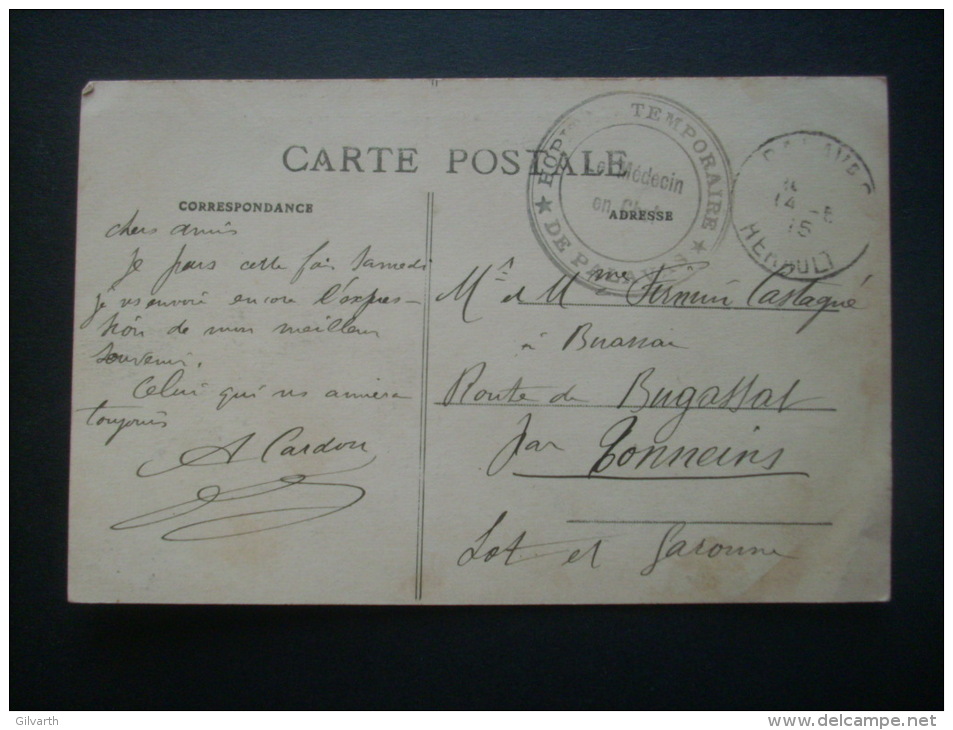 CARTE POSTALE
HOPITAL TEMPORAIRE
★ DE PALAVAS ★
Le Médecin
en Chef
PALAVAS
14 - 6
15
HERAULT
CORRESPONDANCE
chers amis
Je pars cette fois Samedi
je vs envoie encore l'expres-
sion de mon meilleur
souvenir.
Celui qui vs aimera
toujours
A Cardou
ADRESSE
Mr et Mme Firmin Castagné
à
Route de Bugassat
par Tonneins
Lot et Garonne
Gilvarth
www.delcampe.net